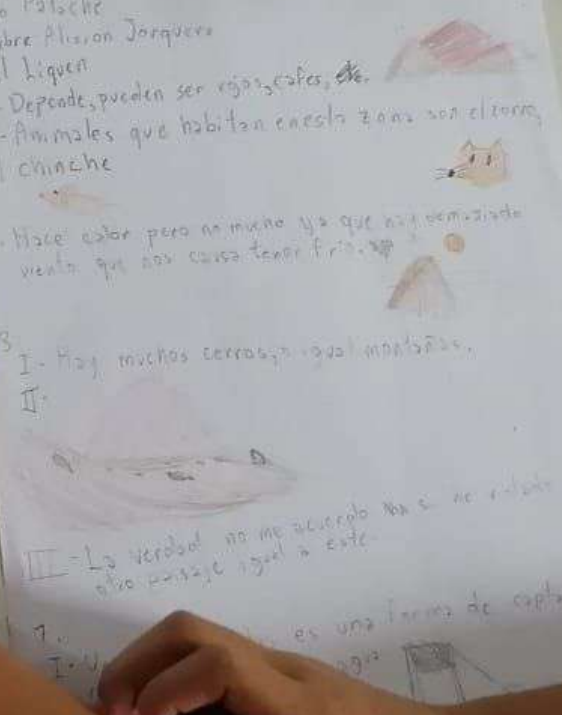 bre Alision Jorquera
l Liquen
- Depende, pueden ser rojos, cafes, etc.
- Animales que habitan en esta zona son el zorro,
l chinche
- Hace calor pero no mucho ya que hay demasiado
viento que nos causa tener frio.
3
I - Hay muchos cerros, igual montañas.
II -
III - La verdad no me acuerdo
otro paisaje igual a este.
7.
I - es una forma de capta
agua